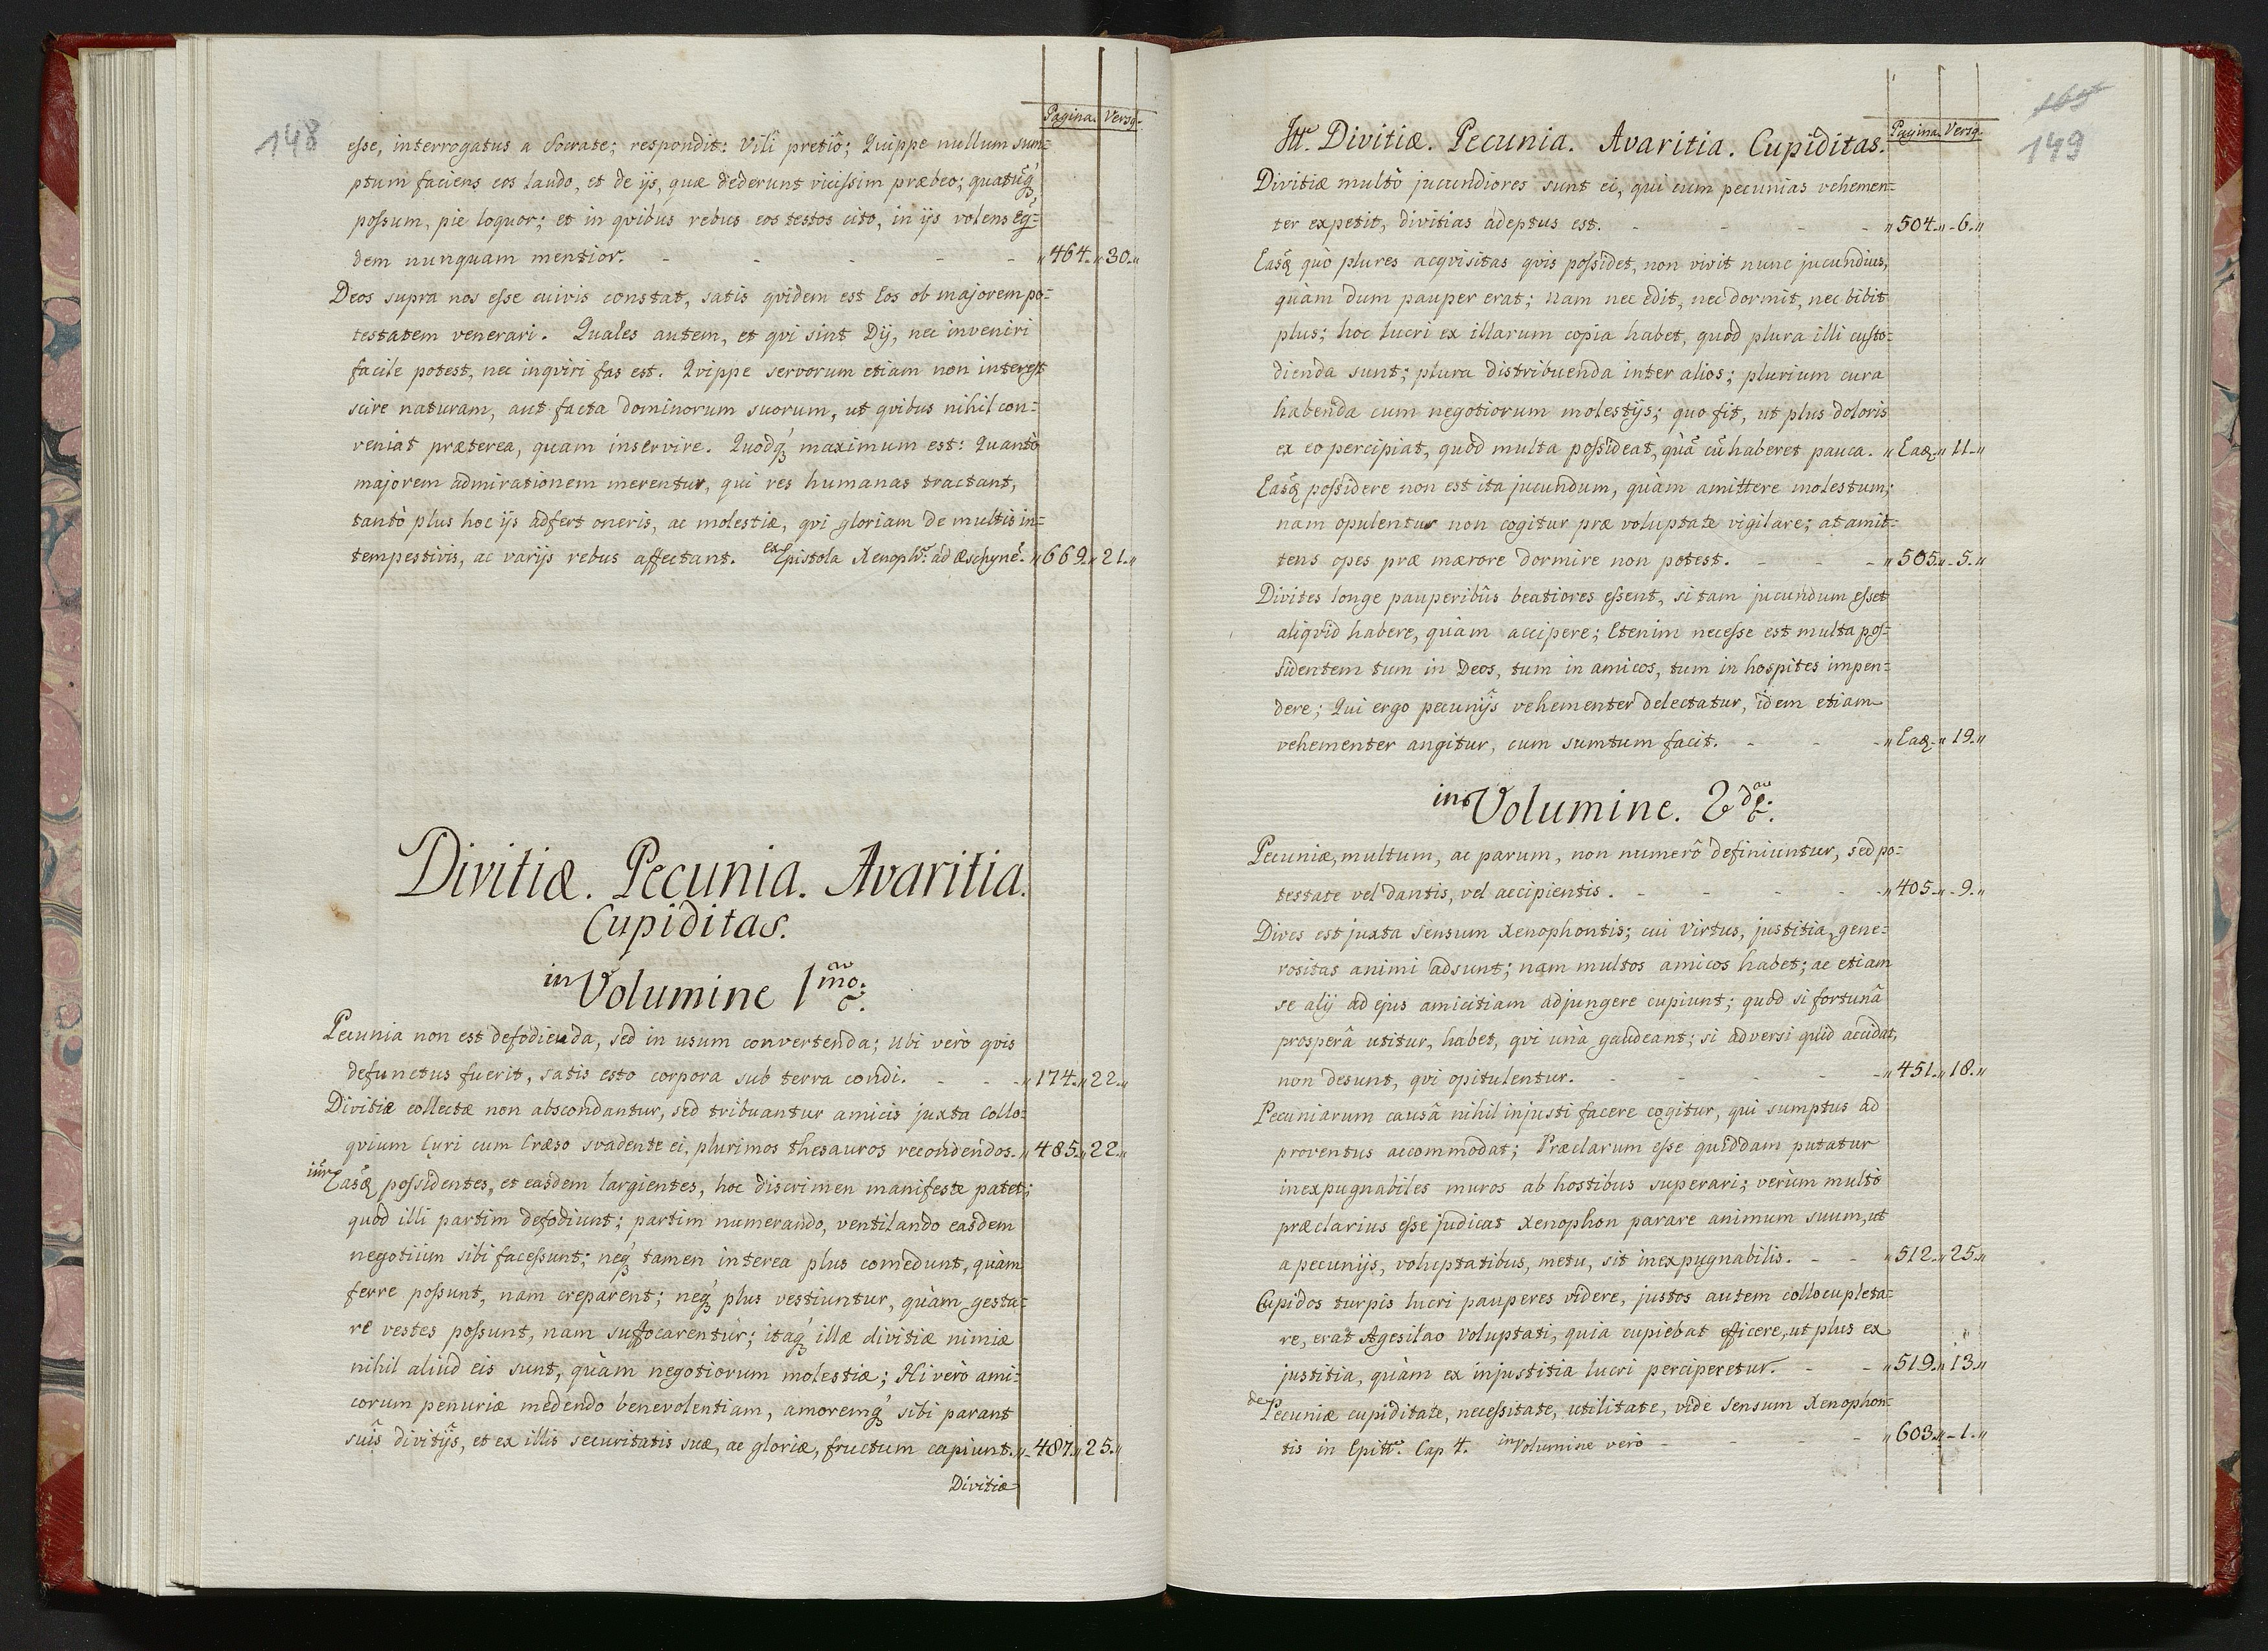 148
Pagina. Versq.
esse, interrogatus a Socrate; respondit: Vili pretiô; Quippe nullum sum=
ptum faciens eos laudo, et de ijs, quæ dederunt vicissim præbeo; quatũq,
possum, pie loquor; et in qvibus rebus eos testes cito, in ijs volens eq̃=
dem nunquam mentior. - - - - - „464.„30.„
Deos supra nos esse cuivis constat, satis qvidem est Eos ob majorem po=
testatem venerari. Quales autem, et qvi sint Dÿ, nec inveniri
facile potest, nec inqviri fas est. Qvippe servorum etiam non interest
scire naturam, aut facta dominorum suorum, ut qvibus nihil con=
veniat præterea, quam inservire. Quodq́ maximum est: Quantò
majorem admirationem merentur, qui res humanas tractant,
tantò plus hoc ijs adfert oneris, ac molestiæ, qvi gloriam de multis in=
tempestivis, ac varijs rebus affectant. ex Epistola Xenoph: ad Æschynẽ. „669.„21.„
Divitiæ. Pecunia. Avaritia.
Cupiditas.
in Volumine 1mo:
Pecunia non est defodienda, sed in usum convertenda; Ubi verò qvis
defunctus fuerit, satis esto corpora sub terra condi. - - -„174.„22.„
Divitiæ collectæ non abscondantur, sed tribuantur amicis juxta Collo=
qvium Cyri cum Cræso svadente ei, plurimos thesauros recondendos. „485.„22.„
inr̃ Easq́ possidentes, et easdem largientes, hoc discrimen manifeste patet;
quod illi partim defodiunt; partim numerando, ventilando easdem
negotium sibi facessunt; neq́ tamen interea plus comedunt, quàm
ferre possunt, nam creparent; neq́ plus vestiuntur, quàm gesta=
re vestes possunt, nam suffocarentur; itaq́ illæ divitiæ nimiæ
nihil aliud eis sunt, quàm negotiorum molestiæ; Hi verò ami=
corum penuriæ medendo benevolentiam, amoremq́ sibi parant
suis divitijs, et ex illis securitatis suæ, ac gloriæ, fructum capiunt.„ 487.„25.„
Divitiæ
165
149
Itt. Divitiæ. Pecunia. Avaritia. Cupiditas.
Pagina. Versq.
Divitiæ multò jucundiores sunt ei, qui cum pecunias vehemen=
ter expetit, divitias adeptus est. - - - - „504.„-6.„
Easq́ quò plures acqvisitas qvis possidet, non vivit nunc jucundius,
quàm dum pauper erat; Nam nec edit, nec dormit, nec bibit
plus; hoc lucri ex illarum copia habet, quod plura illi custo=
dienda sunt; plura distribuenda inter alios; plurium cura
habenda cum negotiorum molestijs; quo fit, ut plus doloris
ex eo percipiat, quòd multa possideat, quã cũ haberet pauca. „Eaq.„11.„
Easq́ possidere non est ita jucundum, quàm amittere molestum;
nam opulentus non cogitur præ voluptate vigilare; at amit=
tens opes præ mærore dormire non potest. - - -„505.„-5.„
Divites longe pauperibus beatiores essent, si tam jucundum esset
aliqvid habere, quàm accipere; Etenim necesse est multa pos=
sidentem tum in Deos, tum in amicos, tum in hospites impen=
dere; Qui ergo pecunijs vehementer delectatur, idem etiam
vehementer angitur, cum sumtum facit. - - -„Eaq.„19.„
in Volumine. 2do:
Pecuniæ, multum, ac parum, non numerô definiuntur, sed po=
testate vel dantis, vel accipientis. - - - - -„405.„-9.„
Dives est juxta sensum Xenophontis; cui virtus, justitia, gene=
rositas animi adsunt; nam multos amicos habet; ac etiam
se alij ad ejus amicitiam adjungere cupiunt; quod si fortunâ
prosperâ utitur, habet, qvi unà gaudeant; si adversi quid accidat,
non desunt, qvi opitulentur. - - - -„451.„18.„
Pecuniarum causâ nihil injusti facere cogitur, qui sumptus ad
proventus accommodat; Præclarum esse quiddam putatur
inexpugnabiles muros ab hostibus superari; verùm multò
præclarius esse judicat Xenophon parare animum suum, ut
a pecunijs, voluptatibus, metu, sit inexpugnabilis. - - „512.„25.„
Cupidos turpis lucri pauperes videre, justos autem collocupleta=
re, erat Agesilao voluptati, quia cupiebat efficere, ut plus ex
justitia, quàm ex injustitia lucri perciperetur. - -„519.„13.„
de Pecuniæ cupiditate, necessitate, utilitate, vide sensum Xenophon=
tis in Epitt. Cap 4. in Volumine verò - - - „603.„-1.„